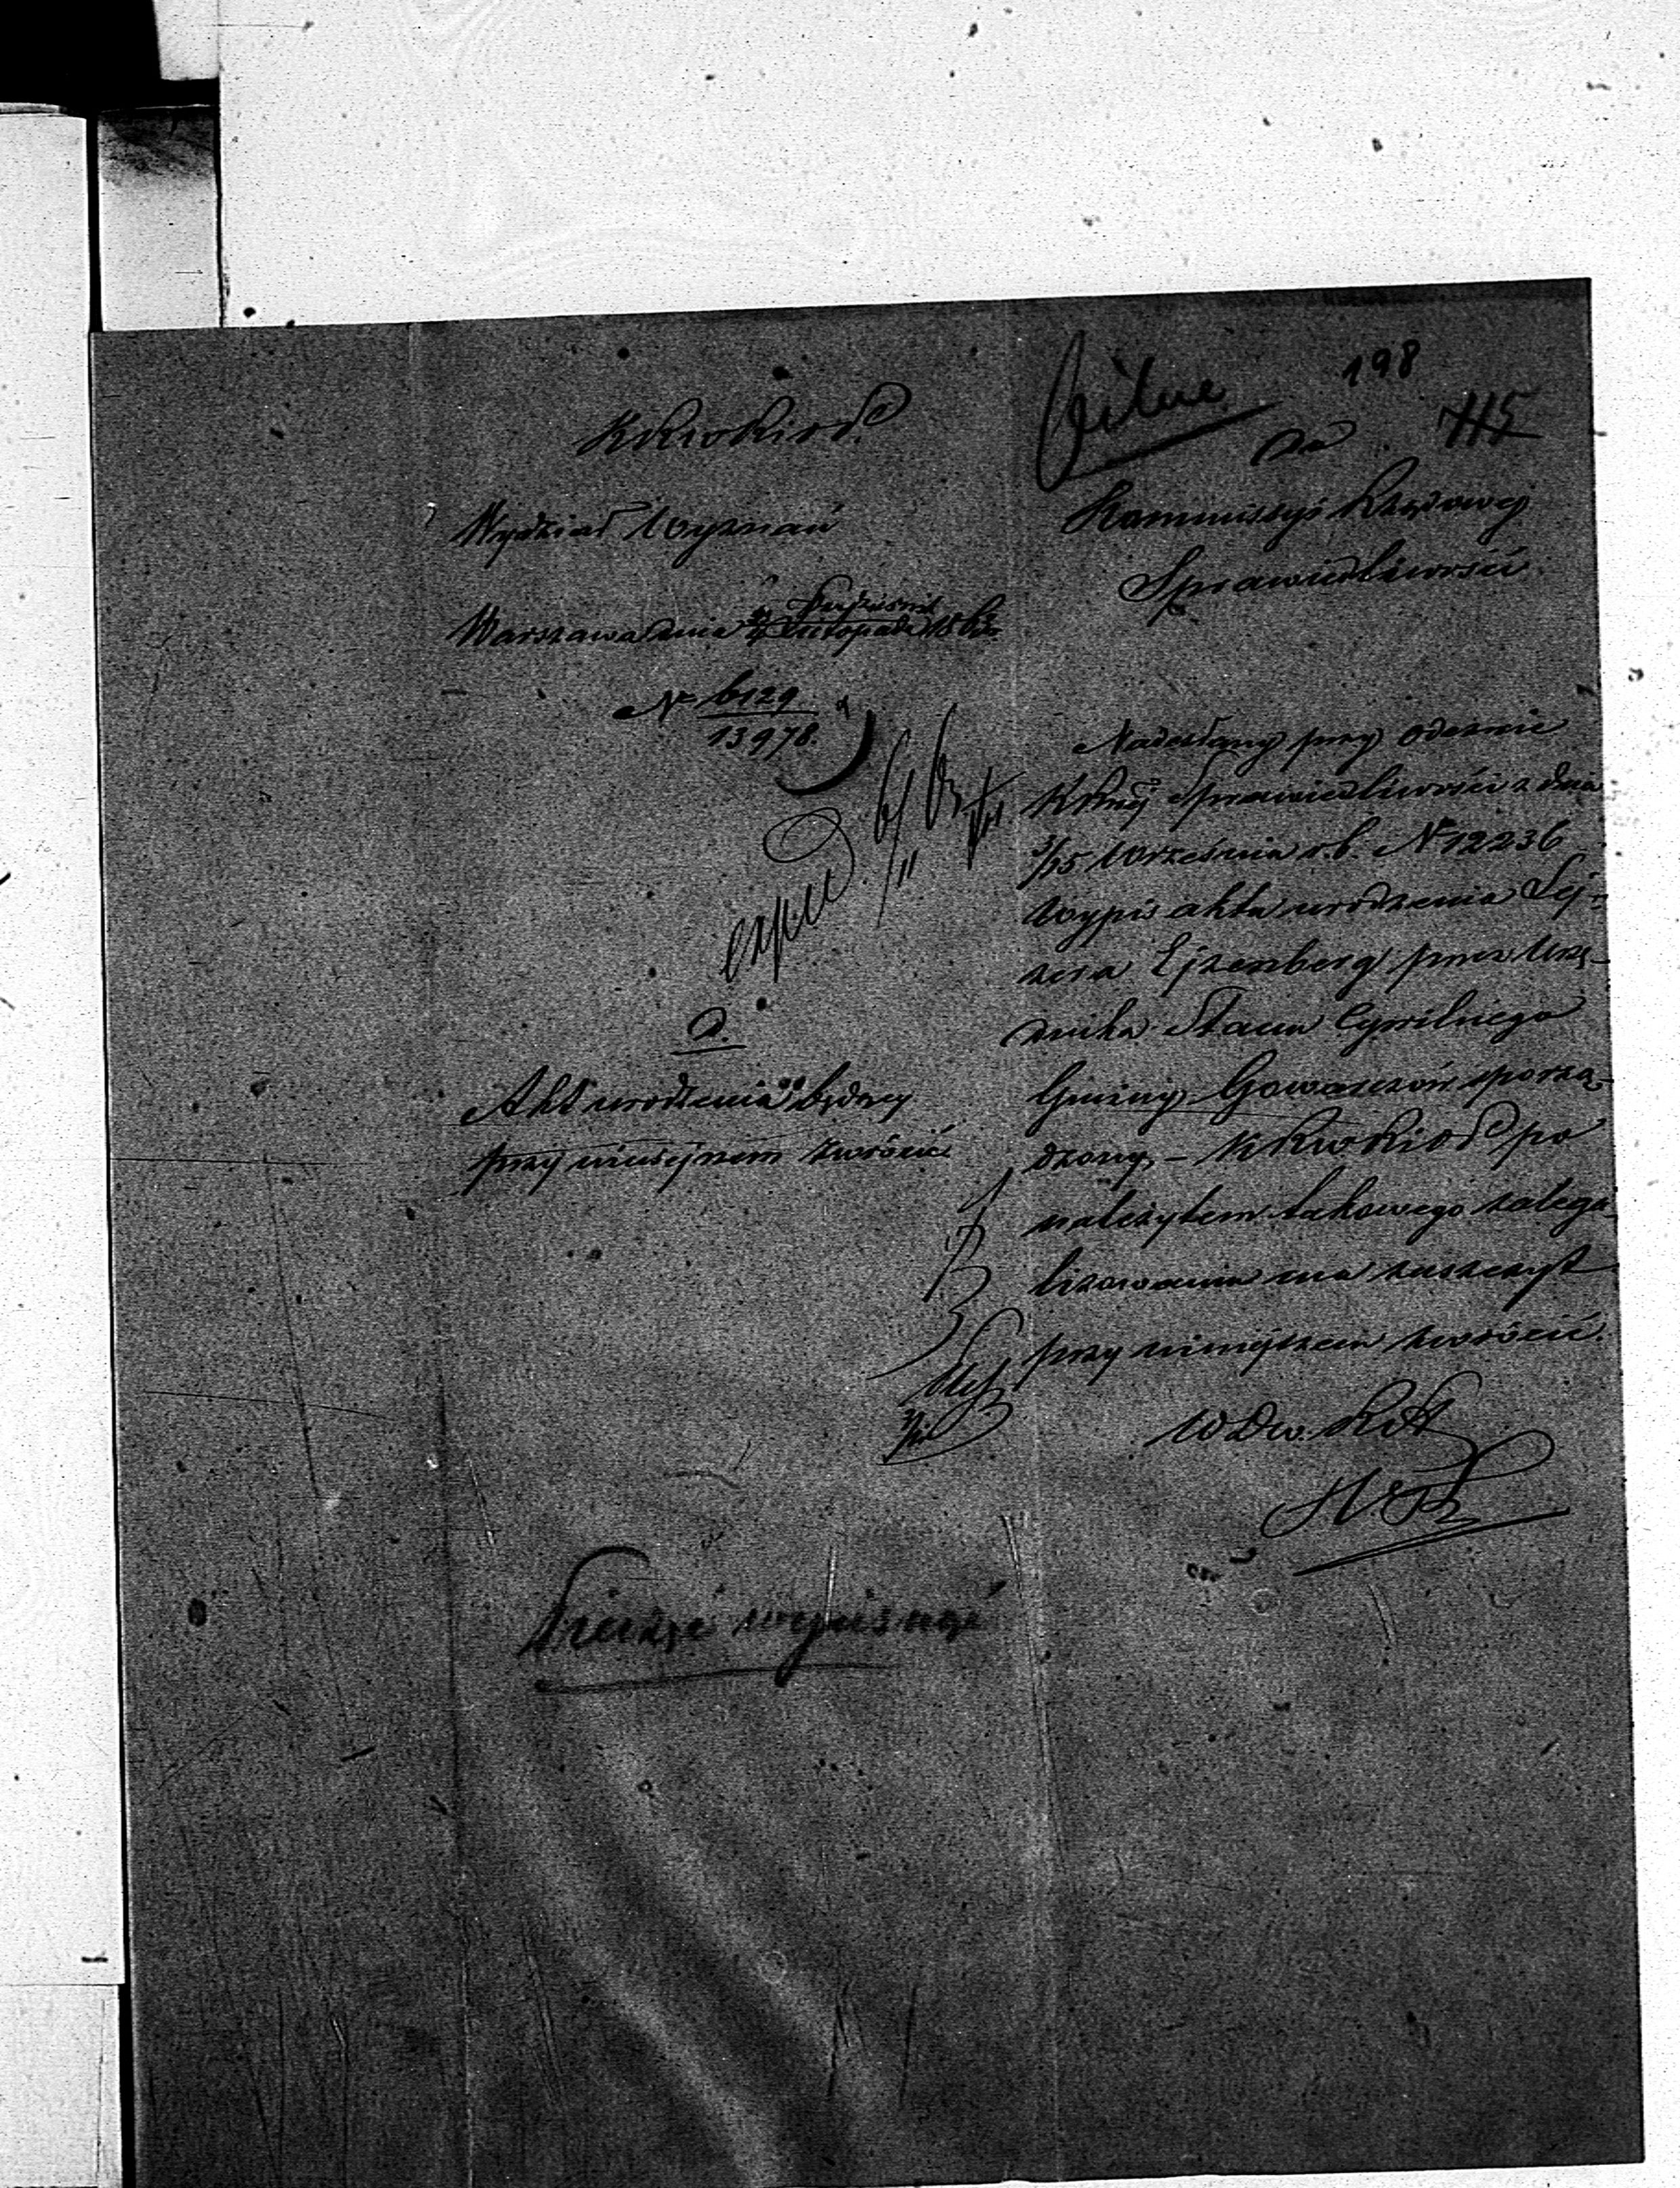 KRWRiOD
Wydział Wyznań
Warszawa dnia Listopada
N 6129
13978.
exped.
a.
Akt urodzenia będący
przy niniejszem zwrócić
Pilne
198
Do 715
Kommissyi Rządowej
Sprawiedliwości
Nadesłany przy odezwie
Sprawiedliwości z dnia
3/15 Września r.b. N 12236
wypis aktu urodzenia Lej-
zora Ejzenberg przez Urzę-
dnika Stanu Cywilnego
Gminy Gowarczów sporzą-
dzony, - KRWRiOD po
należytem takowego zalega-
lizowaniu ma zaszczyt
przy niniejszem zwrócić.